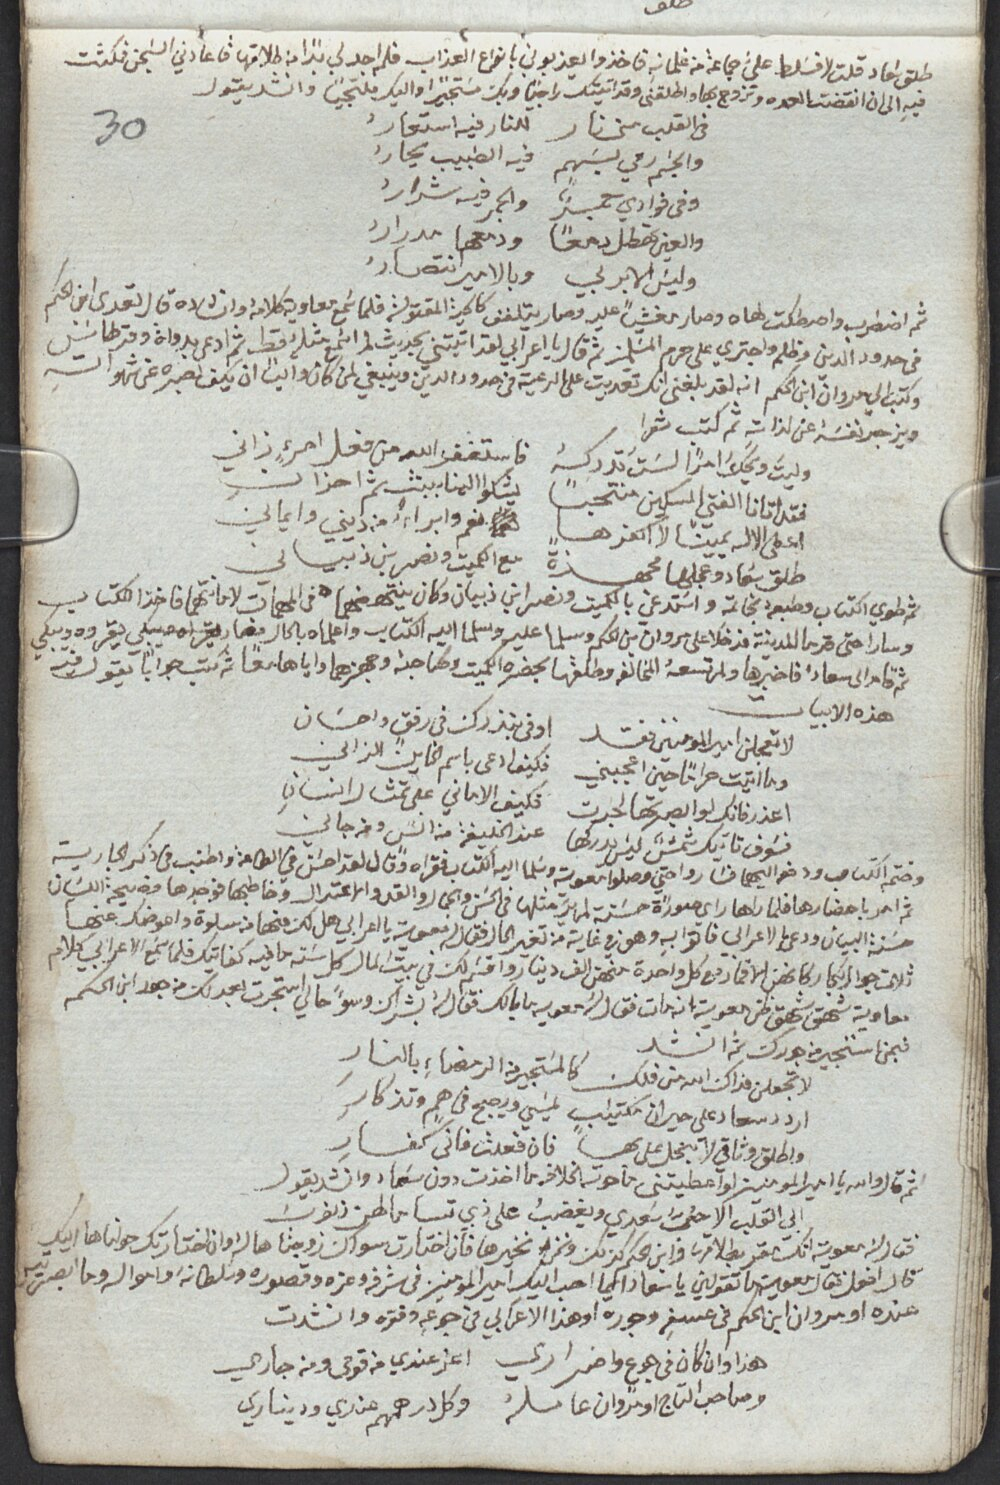 طلق سعاد قلت لا فسلط علي جماعة من غلمانه فاخذوا يعذبوني بانواع العذاب فلم اجد لي بدا من طلاقها فاعادني السجن فمكثت
فيه الى ان انقضت العده وتزوج بها واطلقني وقد اتيتك راجيا وبك مستجيرا واليك ملتجيا وانشد يقول
30
في القلب مني نار للنار فيه استعار
والجسم رمي بسهم فيه الطبيب يحار
وفي فوادي جمر والجمر فيه شرار
والعين تهطل دمعا ودمعها مدرار
وليس الا بربي وبالامير انتصار
ثم اضطرب واصطكت لهاه وصار مغشيا عليه وصار يتلفف كالحية المقتولة فلما سمع معاوية كلامه وانشاده قال تعدى ابن الحكم
في حدود الدين وظلم واجترى على حرم المسلمين ثم قال يا اعرابي لقد اتيتني بحديث لم اسمع بمثله قط ثم ادعى بدواة وقرطاس
وكتب الى مروان ابن الحكم انه لقد بلغني انك تعديت على الرعية في حدود الدين وينبغي لمن كان واليا ان يكف بصره عن شهواته
ويزجر نفسه عن لذاته ثم كتب شعرا
وليت ويحك امرا لست تدركه فاستغفر الله من فعل امرء زاني
فقد اتانا الفتى المسكين منتحبا يشكوا الينا ببث ثم احزان
اعطي الاله يمينا لا اكفرها نعم وابراء من ديني وايماني
طلق سعاد وعجلها مجهزة مع الكميت ونصر بن ذبيان
ثم طوي الكتاب وطبعه بخاتمه واستدعى بالكميت ونصر ابن ذبيان وكان يستنهضهما في المهمات لامانتهما فاخذا الكتاب
وسارا حتى قدما المدينة فدخلا على مروان بن الحكم وسلما عليه وسلما اليه الكتاب واعلماه بالحال فصار يقراه ويبكي
ثم قام الى سعاد فاخبرها ولم تسعه المخالفه وطلقها بحضرة الكميت وصاحبه وجهزهما واياها معا ثم كتب جوابا يقول فيه
هذه الابيات
لا تعجلن امير المومنين فقد اوفى بنذرك في رفق واحسان
وما اتيت حراما حين اعجبني فكيف ادعى باسم الخاين الزاني
اعذر فانك لو ابصرتها لجرت فيك الاماني على تمثال انسان
فسوف تاتيك شمس ليس يدركها عند الخليفة من انس ومن جان
وختم الكتاب ودفعه اليهما فسارا حتى وصلوا معوية وسلما اليه الكتاب فقراه وقال لقد احسن في الطاعة واطنب في ذكر الجارية
ثم امر باحضارها فلما راها راى صورة حسنة لم ير مثلها في الحسن والجمال والقد والاعتدال وخاطبها فوجدها فصيحة اللسان
حسنة البيان ودعى بالاعرابي فاتوا به وهو في غاية من تغير الحال فقال له معوية يا اعرابي هل لك عنها من سلوة واعوضك عنها
ثلاث جوار ابكار كانهن الاقمار مع كل واحدة منهن الف دينار واقسم لك في بيت المال كل سنه ما فيه كفايتك فلما سمع الاعرابي كلام
معاوية شهق شهقة ظن معوية انه مات فقال له معويه ما بالك فقال له بشر بال وسو حالي استجرت بعدلك من جور ابن الحكم
فبمن استجير من جورك ثم انشد
لا تجعلن فداك الله من فلك كالمستجير من الرمضاء بالنار
اردد سعاد على حيران مكتئب يمسي ويصبح في هم وتذكار
واطلق وثاقي لا تبخل علي بها فان فعلت فاني غير كفار
ثم قال والله يا امير المومنين لو اعطيتني ما حوت الخلافه ما اخذت دون سعاد وانشد يقول
ابى القلب الا حب سعدى وبغضت علي نسا ما لهن ذنوب
فقال له معوية انك مقر بطلاقها وابن الحكم كذلك ونحن نخيرها فان اختارت سواك زوجناها له وان اختارتك حولناها اليك
قال افعل فقال معوية ما تقولين يا سعاد ايما احب اليك امير المومنين في شرفه وعزه وقصوره وسلطانه وامواله وما ابصرتيه
عنده او مروان ابن الحكم في عسفه وجوره او هذا الاعرابي في جوعه وفقره وانشدت
هذا وان كان في جوع واضراري اعز عندي من قومي ومن جاري
وصاحب التاج او مروان عامله وكل درهم عندي وديناري